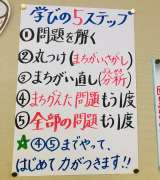 学びの5ステップ
①問題を解く
②丸つけ(まちがいさがし)
③まちがい直し(分析)
④まちがえた問題もう1度
⑤全部の問題もう1度
☆④⑤までやって、
はじめて力がつきます!!